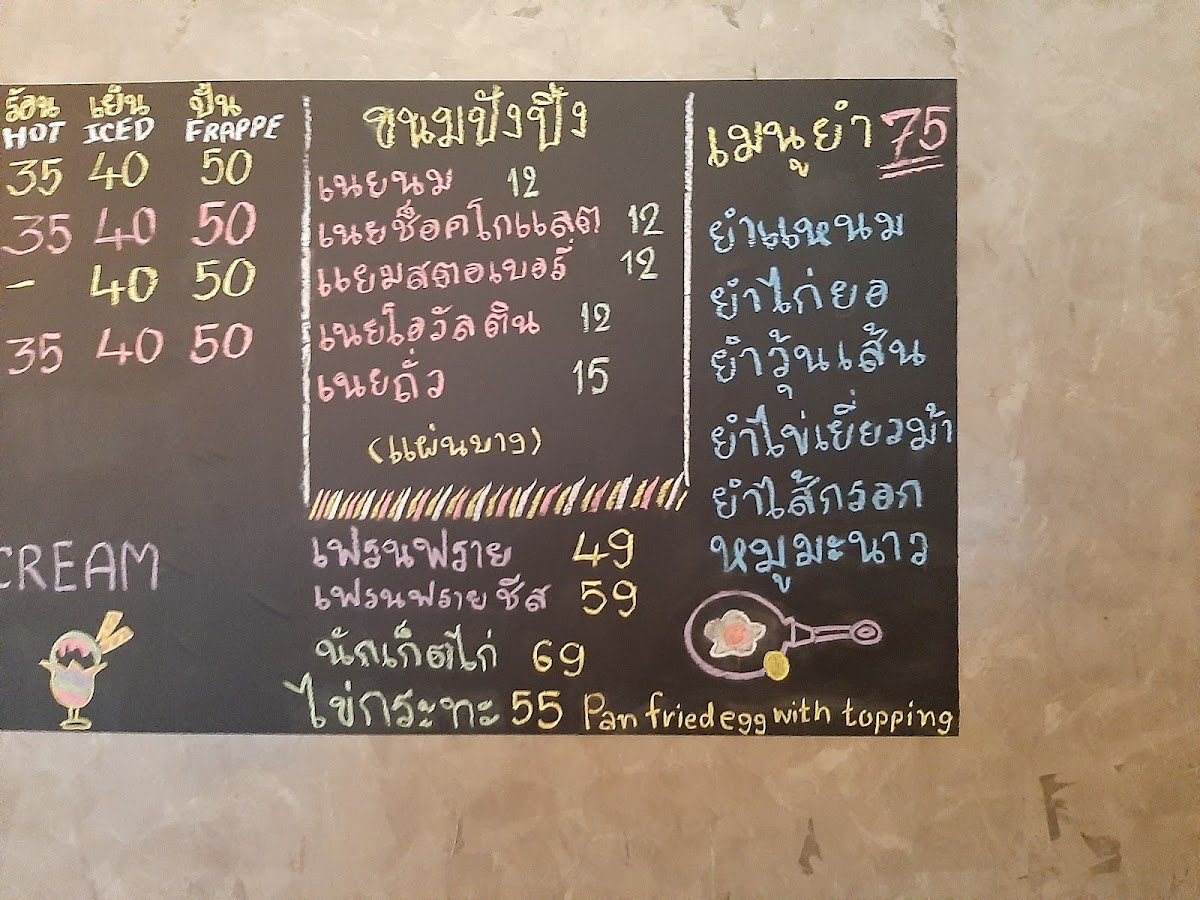 ร้อน เย็น ปั่น
HOT ICED FRAPPE
35 40 50
35 40 50
- 40 50
35 40 50
CREAM
ขนมปังปิ้ง
เนยนม 12
เนยช็อคโกแลต 12
แยมสตอเบอรี่ 12
เนยโอวัลติน 12
เนยถั่ว 15
(แผ่นบาง)
เฟรนฟราย 49
เฟรนฟรายชีส 59
นักเก็ตไก่ 69
ไข่กระทะ 55 Pan fried egg with topping
เมนูยำ 75
ยำแหนม
ยำไก่ยอ
ยำวุ้นเส้น
ยำไข่เยี่ยวม้า
ยำไส้กรอก
หมูมะนาว